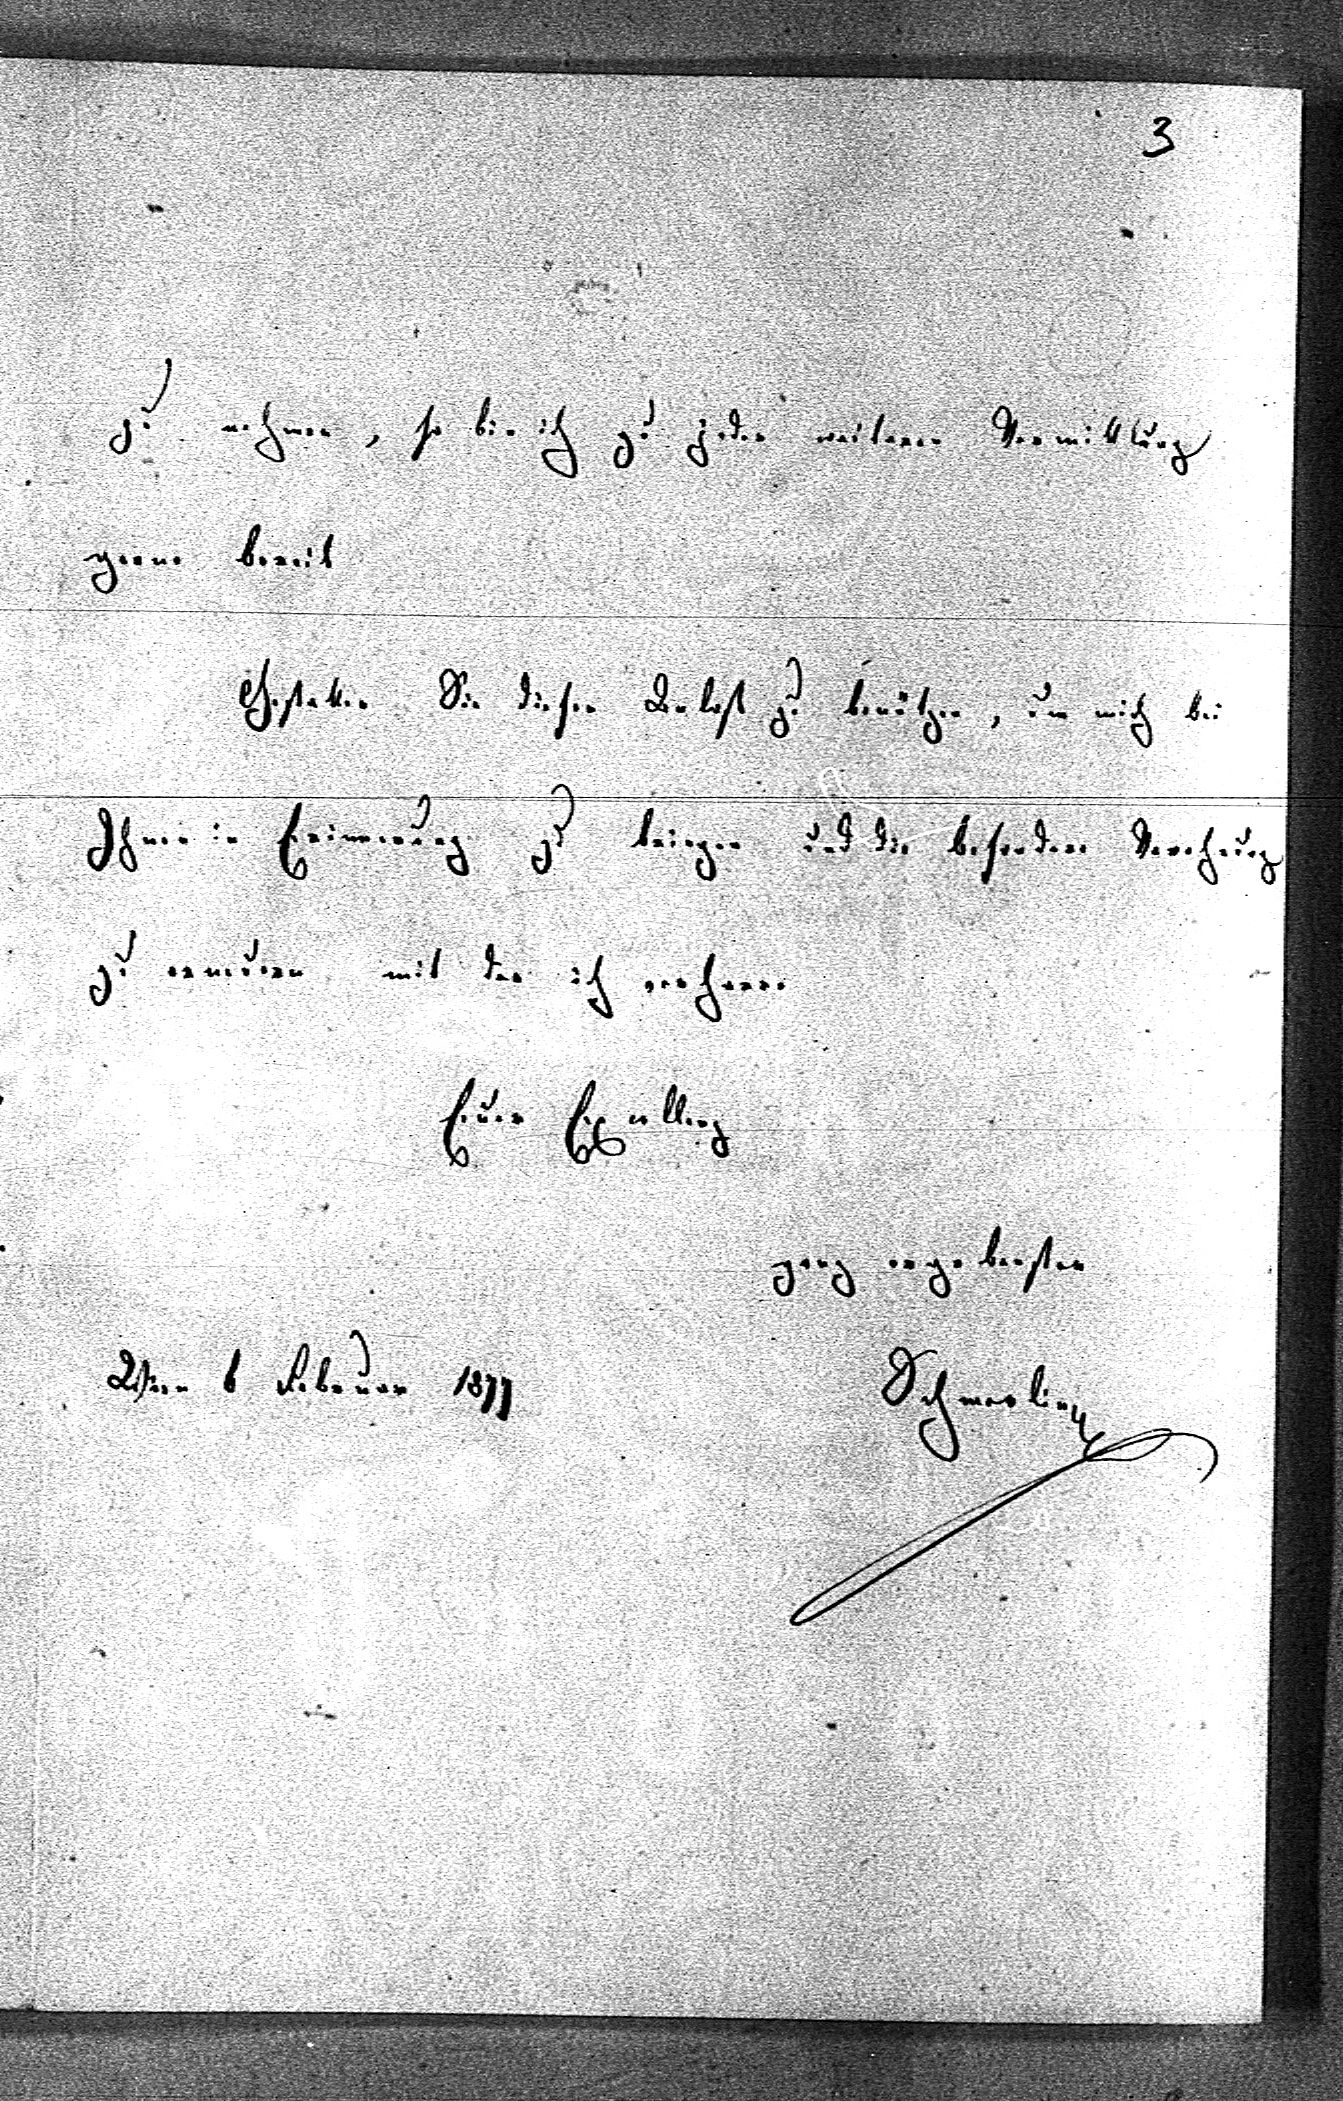 3
zu nehmen, so bin ich zu jeder weiteren Vermittlung
gerne bereit
Gestatten Sie diesen Anlaß zu benützen, um mich bei
Ihnen in Erinnerung zu bringen und die besondere Verehrung
zu erneuern mit der ich verharre
Euer Exzellenz
ganz ergebenster
Wien 6 Februar 1877
Schmerling